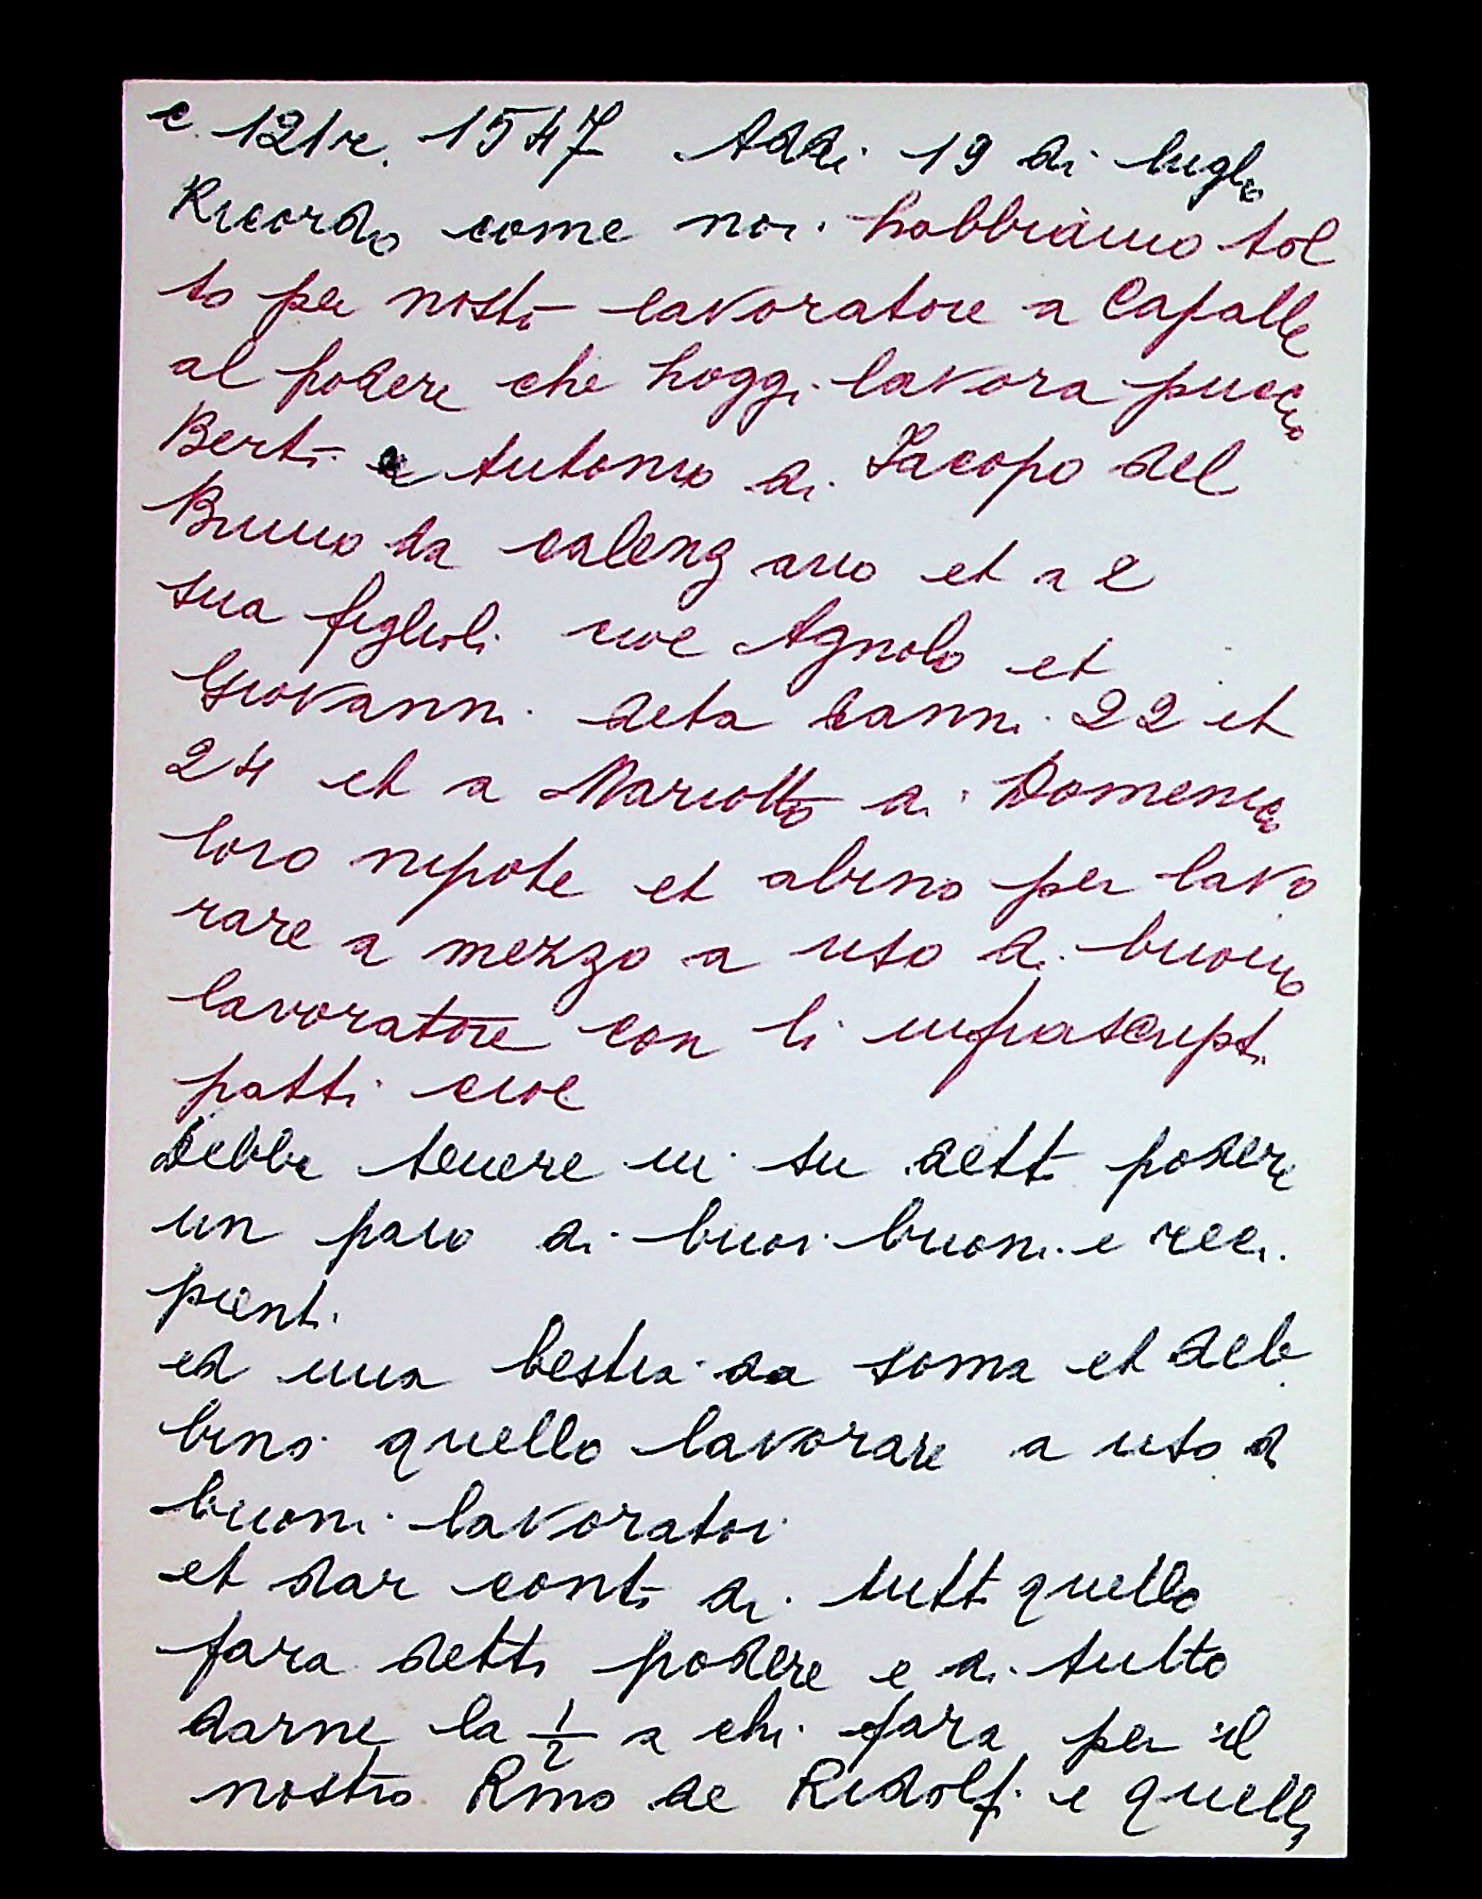 c. 121r. 1547 Addi 19 di luglo
Ricordo come noi habbiamo tol
to per nostro lavoratore a Capalle
al podere che hoggi lavora puccio
Berti e Antonio di Iacopo del
Bruno da calenzano et a 2
sua figlioli cioe Agnolo et
Giovanni deta danni 22 et
24 et a Mariotto di Domenico
loro nipote et abino per lavo
rare a mezzo a uso di buono
lavoratore con li infrascripti
patti cioe
Debbe tenere in su detto podere
un paro di buoi buoni e reci
pienti
ed una bestia da soma et deb
bino quello lavorare a uso d
buoni lavoratori
et dar conto di tutto quello
fara detto podere e di tutto
darne la 1/2 a chi fara per il
nostro Rmo de Ridolfi e quello